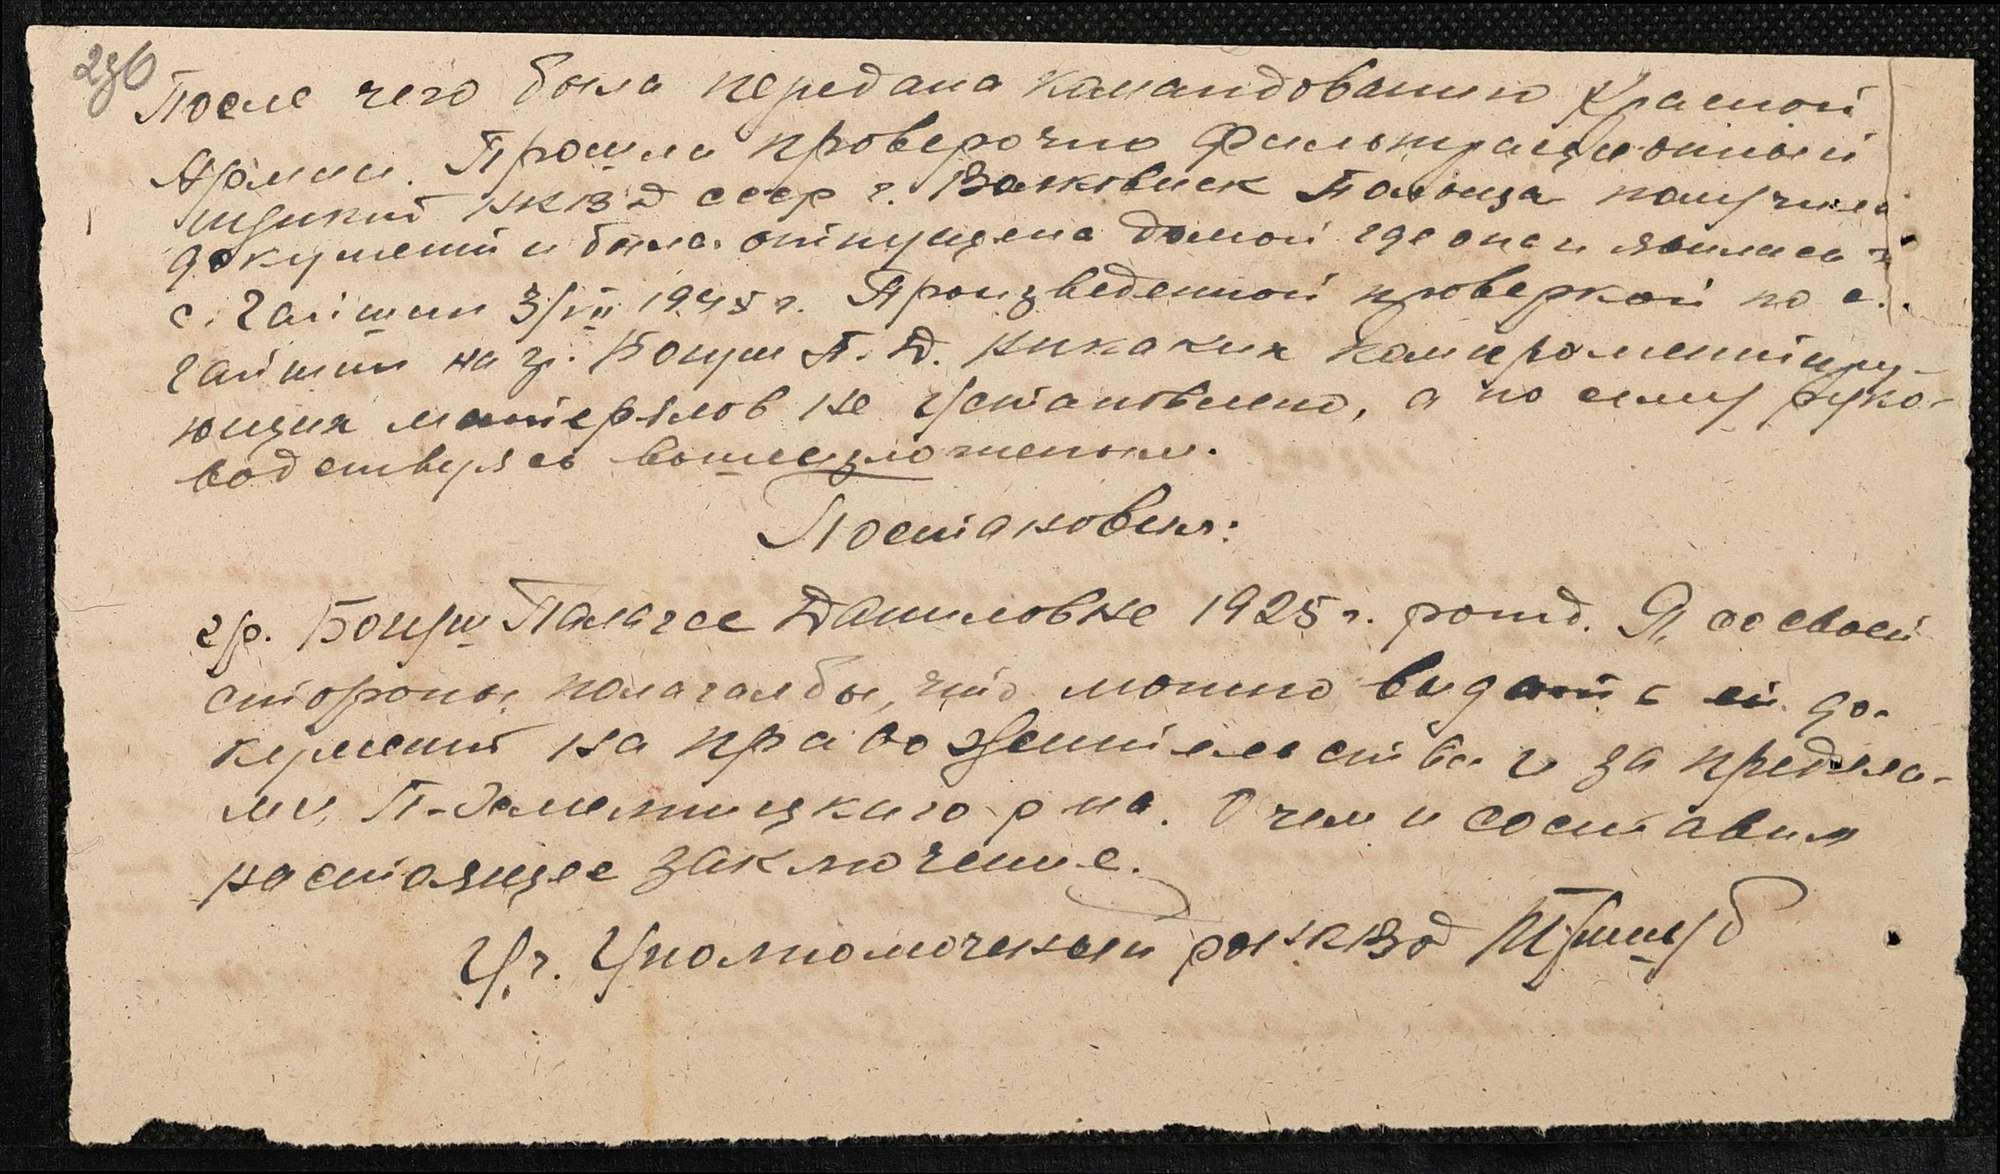 236
После чего была передана командованию Красной
Армии. Прошла проверочно фильтрационный
пункт НКВД СССР г. Волковиск Польща получила
документ и была отпущена домой где она и явилась в
с. Гайшин 3/VII 1945 г. Произведенной проверкой по с.
Гайшин на гр. Бонуш П. Д. никаких компроментиру-
ющих матерялов не установлено, а по сему руко-
водствуясь вышеизложеным.
Постановил:
гр. Бонуш Палагее Даниловне 1925 г. рожд. Я, со своей
стороны полагал бы, что можно выдать ей до-
кумент на право жительства и за предела-
ми П-Хмельницкого р-на. О чем и составил
настоящее заключение.
Уч. Уполномоченый ро НКВД